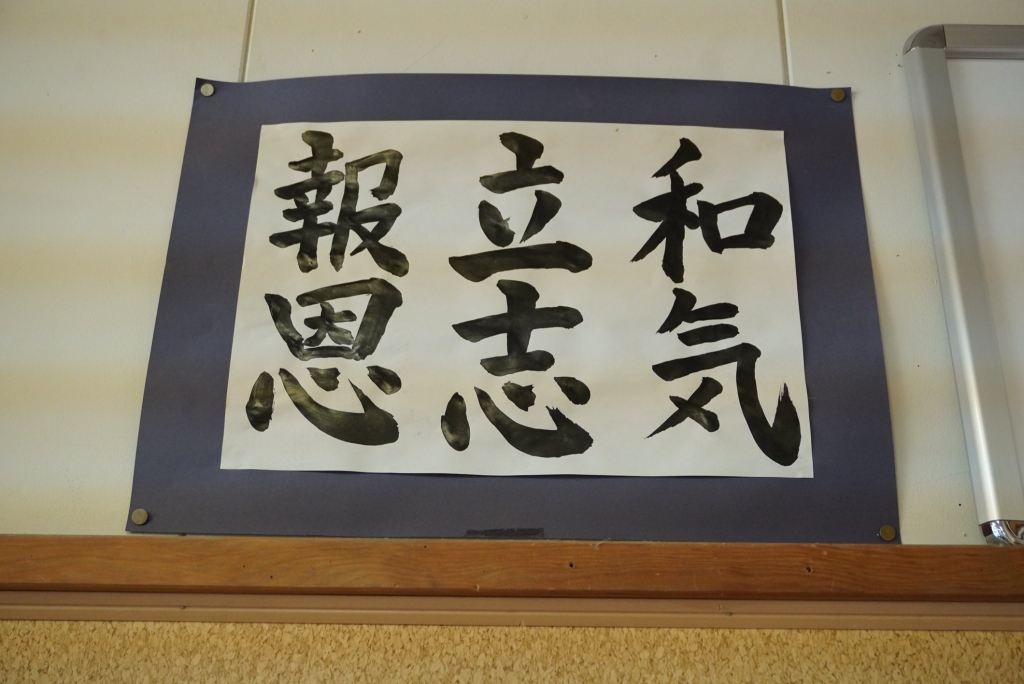 和気
立志
報恩